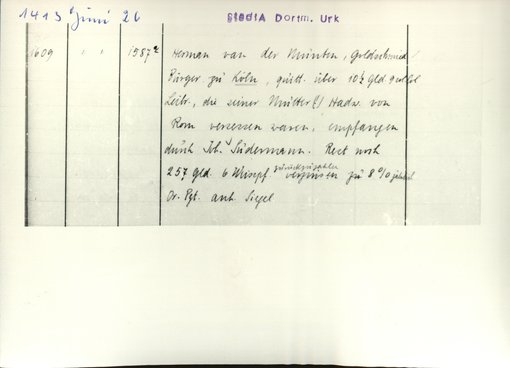 1413 Juni 26 StadtA Dortm. Urk
1609 " " 1587a Herman van der Munten, Goldschmied,
Bürger zu Köln, quitt. über 10½ Gld
Leibr., die seiner Mutter (!) Hadw. von
Rom versessen waren, empfangen
durch Joh. Südermann. Rest noch
257 Gld. 6 zurückzuzahlen zu 8 % jährlich
Or. Pgt. anh. Siegel